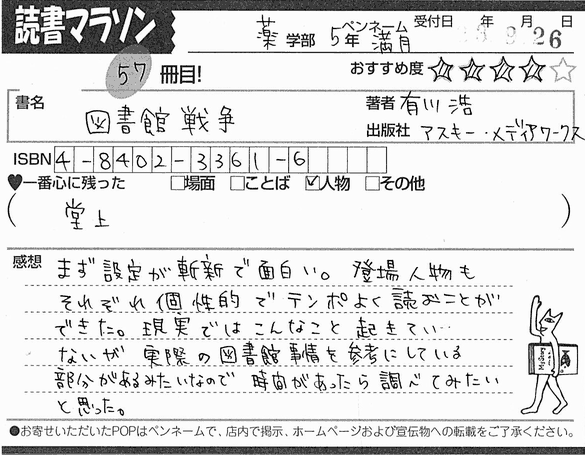 読書マラソン
薬 学部 5年 ペンネーム 満月 受付日 年 月 日 26
57 冊目! おすすめ度 ★★★★☆
書名 図書館戦争 著者 有川 浩
出版社 アスキー・メディアワークス
ISBN 4-8402-3361-6
♥一番心に残った □場面 □ことば ☑人物 □その他
( 堂上 )
感想 まず設定が斬新で面白い。登場人物も
それぞれ個性的でテンポよく読むことが
できた。現実ではこんなこと起きてい…
ないが実際の図書館事情を参考にしている
部分があるみたいなので時間があったら調べてみたい
と思った。
●お寄せいただいたPOPはペンネームで、店内で掲示、ホームページおよび宣伝物への転載をご了承ください。